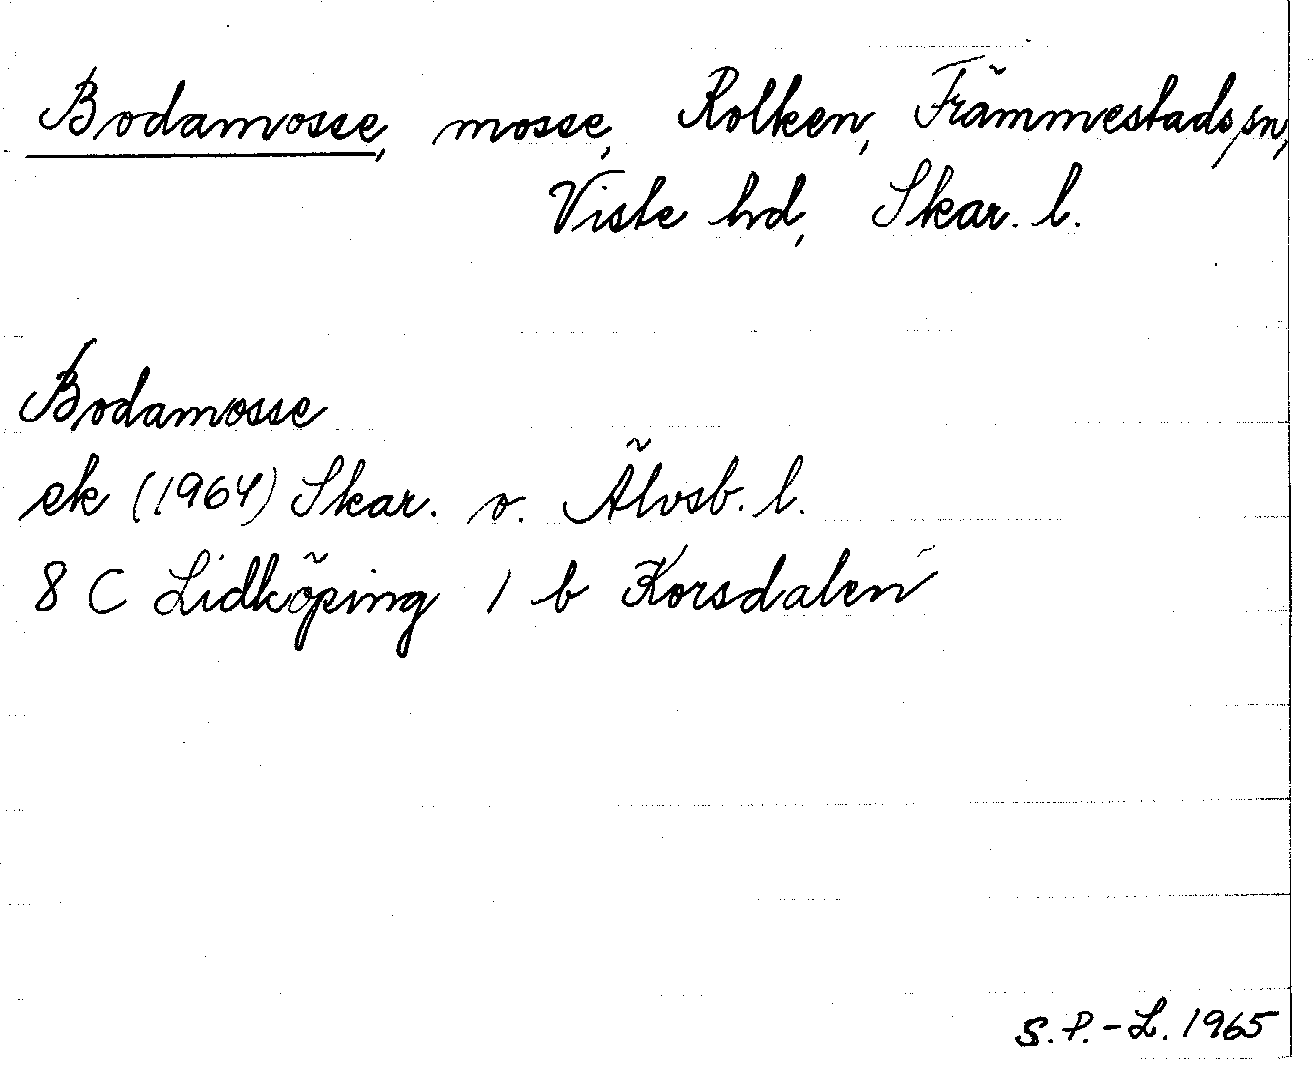 Bodamosse, mosse, Rolken, Främmestads sn,
Viste hd, Skar. l.
Bodamosse
ek (1964) Skar. o. Älvsb. l.
8 C Lidköping 1 b Korsdalen
S. P.-L. 1965